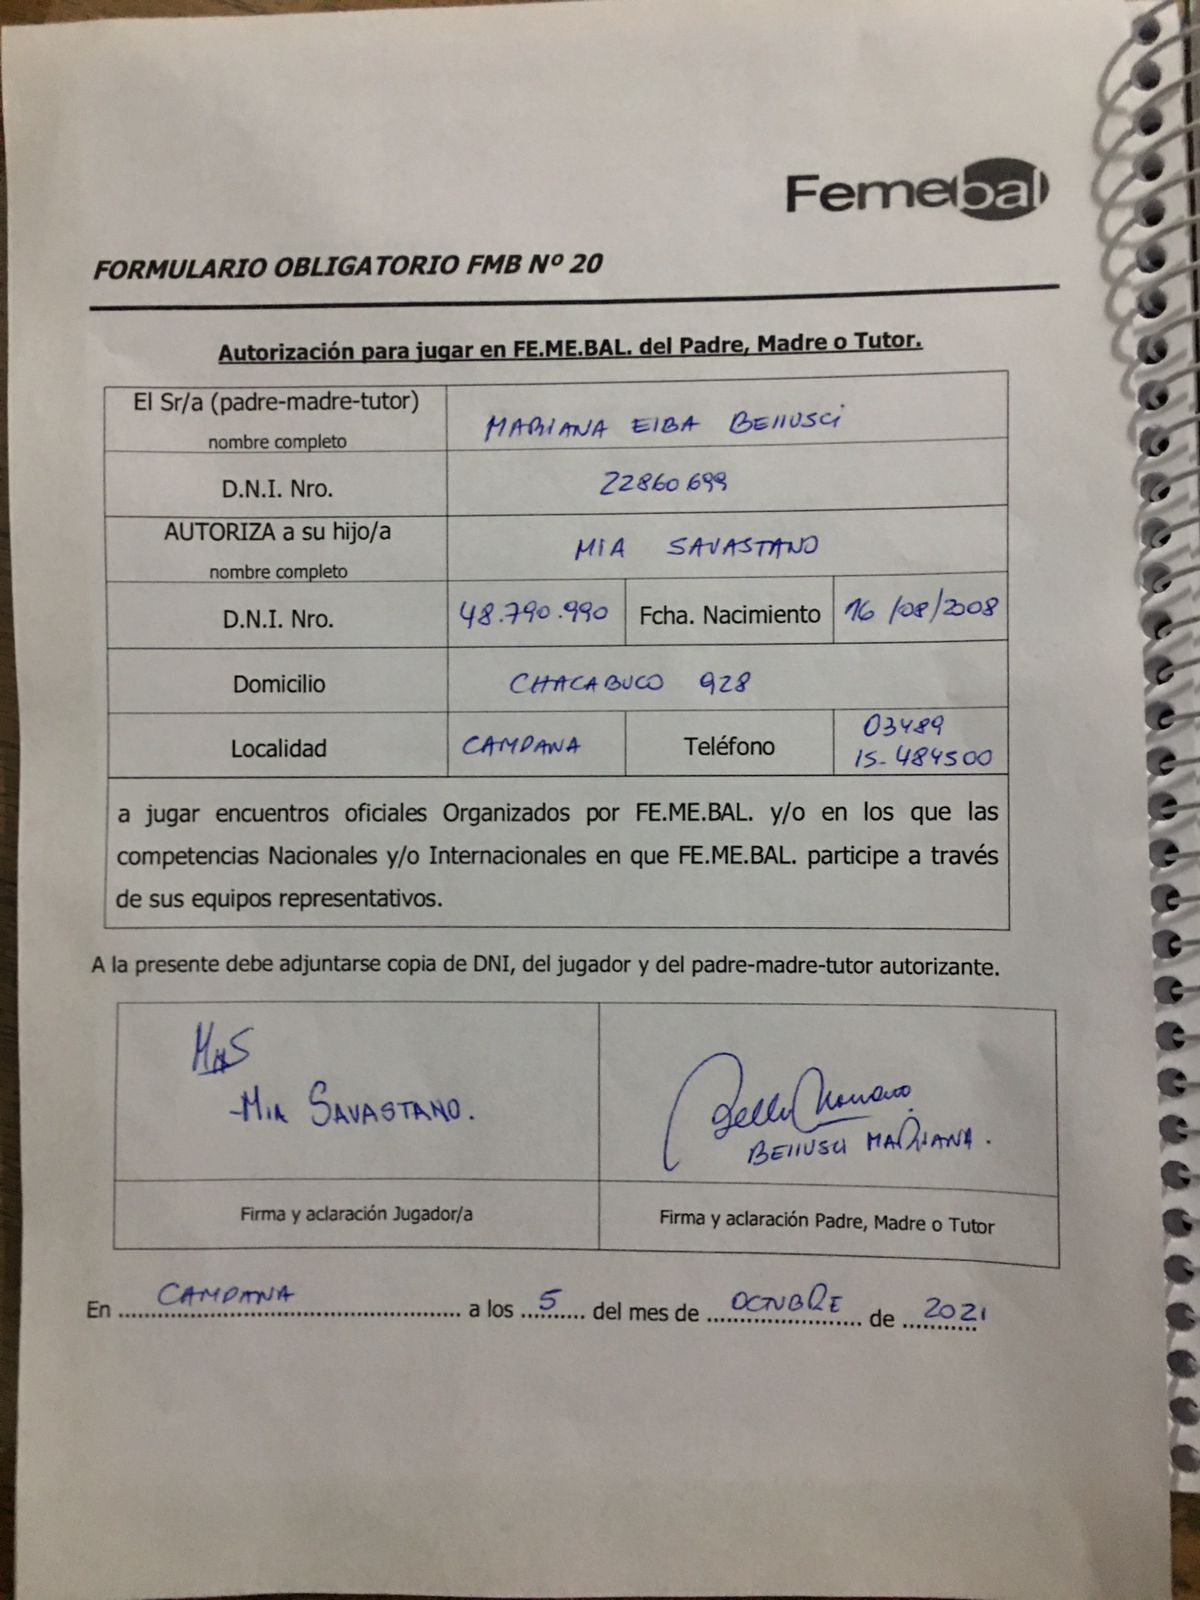 Femebal
FORMULARIO OBLIGATORIO FMB Nº 20
Autorización para jugar en FE.ME.BAL. del Padre, Madre o Tutor.
El Sr/a (padre-madre-tutor)
nombre completo
MARIANA ElBA BEllUSCi
D.N.I. Nro.
22860699
AUTORIZA a su hijo/a
nombre completo
MIA SAVASTANO
D.N.I. Nro.
48.790.990
Fcha. Nacimiento
16/08/2008
Domicilio
CHACABUCO 928
Localidad
CAMPANA
Teléfono
03489
15-484500
a jugar encuentros oficiales Organizados por FE.ME.BAL. y/o en los que las
competencias Nacionales y/o Internacionales en que FE.ME.BAL. participe a través
de sus equipos representativos.
A la presente debe adjuntarse copia de DNI, del jugador y del padre-madre-tutor autorizante.
MIA SAVASTANO.
BEllUSCI MARIANA.
Firma y aclaración Jugador/a
Firma y aclaración Padre, Madre o Tutor
En CAMPANA a los 5 del mes de OCTUBRE de 2021